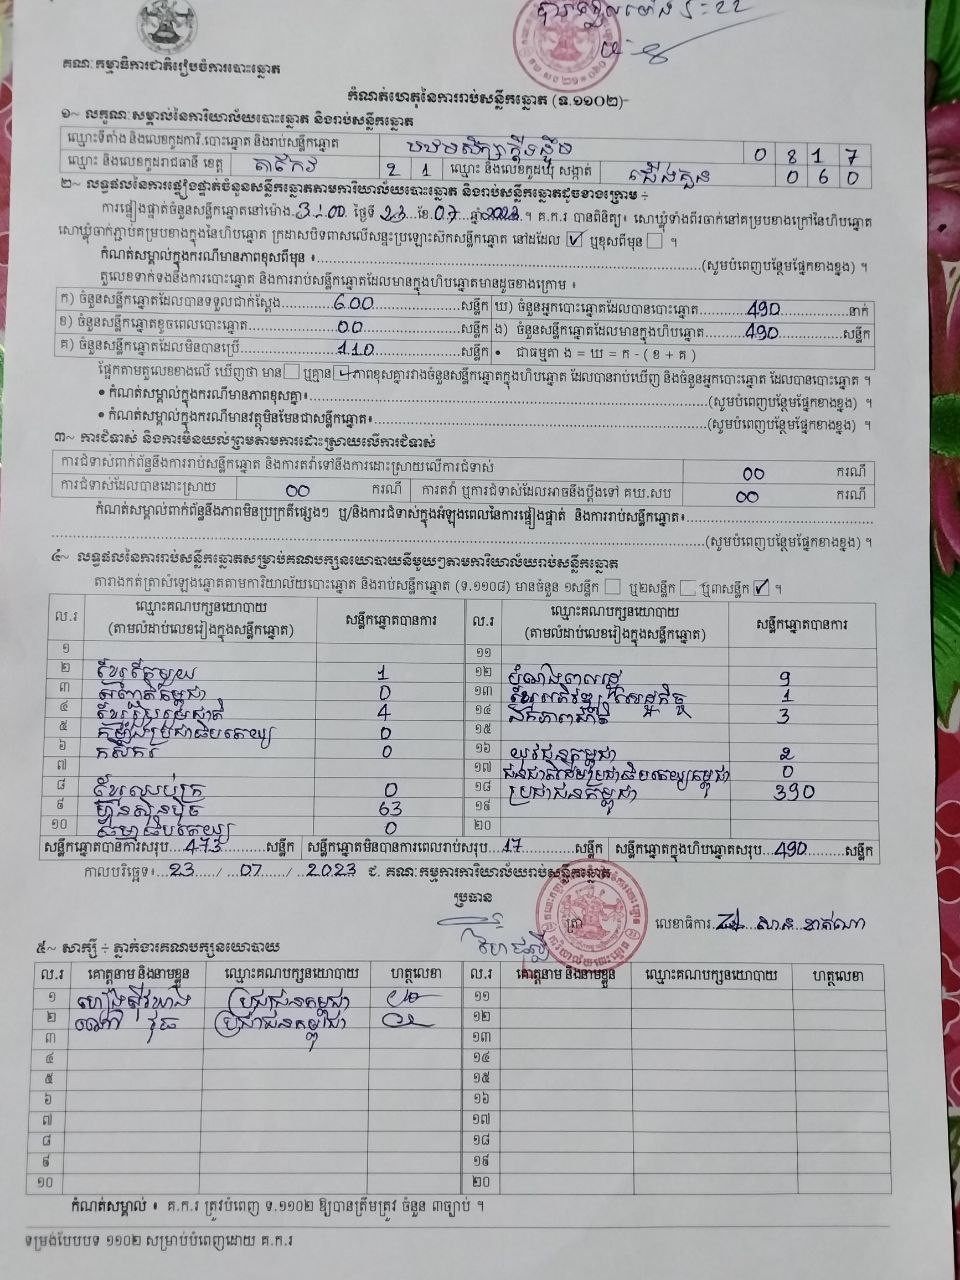 គណៈកម្មាធិការជាតិរៀបចំការបោះឆ្នោត
កំណត់ហេតុនៃការរាប់សន្លឹកឆ្នោត (ទ.១១០២)
១~ លក្ខណៈសម្គាល់នៃការិយាល័យបោះឆ្នោត និងរាប់សន្លឹកឆ្នោត
ឈ្មោះទីតាំង និងលេខកូដការិ.បោះឆ្នោត និងរាប់សន្លឹកឆ្នោត 0 8 1 7
ឈ្មោះ និងលេខកូដរាជធានី ខេត្ត តាកែវ 2 1 ឈ្មោះ និងលេខកូដឃុំ សង្កាត់ ជើងគួន 0 6 0
២~ លទ្ធផលនៃការផ្ទៀងផ្ទាត់ចំនួនសន្លឹកឆ្នោតតាមការិយាល័យបោះឆ្នោត និងរាប់សន្លឹកឆ្នោតដូចខាងក្រោម ÷
ការផ្ទៀងផ្ទាត់ចំនួនសន្លឹកឆ្នោតនៅម៉ោង 3:00 ថ្ងៃទី 23 ខែ 07 ឆ្នាំ 2023 ។ គ.ក.រ បានពិនិត្យ៖ សោឃ្លុំទាំងពីរចាក់នៅគម្របខាងក្រៅនៃហិបឆ្នោត
សោឃ្លុំចាក់ភ្ជាប់គម្របខាងក្នុងនៃហិបឆ្នោត ក្រដាសបិទពាសលើសន្ទះប្រឡោះស៊កសន្លឹកឆ្នោត នៅដដែល ☑ ឬខុសពីមុន ☐ ។
កំណត់សម្គាល់ក្នុងករណីមានភាពខុសពីមុន ៖ (សូមបំពេញបន្ថែមផ្នែកខាងខ្នង) ។
តួលេខទាក់ទងនឹងការបោះឆ្នោត និងការរាប់សន្លឹកឆ្នោតដែលមានក្នុងហិបឆ្នោតមានដូចខាងក្រោម ៖
ក) ចំនួនសន្លឹកឆ្នោតដែលបានទទួលជាក់ស្តែង 600 សន្លឹក ឃ) ចំនួនអ្នកបោះឆ្នោតដែលបានបោះឆ្នោត 490 នាក់
ខ) ចំនួនសន្លឹកឆ្នោតខូចពេលបោះឆ្នោត 00 សន្លឹក ង) ចំនួនសន្លឹកឆ្នោតដែលមានក្នុងហិបឆ្នោត 490 សន្លឹក
គ) ចំនួនសន្លឹកឆ្នោតដែលមិនបានប្រើ 110 សន្លឹក • ជាធម្មតា ង = ឃ = ក - ( ខ + គ )
ផ្អែកតាមតួលេខខាងលើ ឃើញថា មាន ☐ ឬគ្មាន ☑ ភាពខុសគ្នារវាងចំនួនសន្លឹកឆ្នោតក្នុងហិបឆ្នោត ដែលបានរាប់ឃើញ និងចំនួនអ្នកបោះឆ្នោត ដែលបានបោះឆ្នោត ។
• កំណត់សម្គាល់ក្នុងករណីមានភាពខុសគ្នា៖ (សូមបំពេញបន្ថែមផ្នែកខាងខ្នង) ។
• កំណត់សម្គាល់ក្នុងករណីមានវត្ថុមិនមែនជាសន្លឹកឆ្នោត៖ (សូមបំពេញបន្ថែមផ្នែកខាងខ្នង) ។
៣~ ការជំទាស់ និងការមិនយល់ព្រមតាមការដោះស្រាយលើការជំទាស់
ការជំទាស់ពាក់ព័ន្ធនឹងការរាប់សន្លឹកឆ្នោត និងការតវ៉ាទៅនឹងការដោះស្រាយលើការជំទាស់ 00 ករណី
ការជំទាស់ដែលបានដោះស្រាយ 00 ករណី ការតវ៉ា ឬការជំទាស់ដែលអាចនឹងប្តឹងទៅ គឃ.សប 00 ករណី
កំណត់សម្គាល់ពាក់ព័ន្ធនឹងភាពមិនប្រក្រតីផ្សេងៗ ឬ/និងការជំទាស់ក្នុងអំឡុងពេលនៃការផ្ទៀងផ្ទាត់ និងការរាប់សន្លឹកឆ្នោត៖
(សូមបំពេញបន្ថែមផ្នែកខាងខ្នង) ។
៤~ លទ្ធផលនៃការរាប់សន្លឹកឆ្នោតសម្រាប់គណបក្សនយោបាយនីមួយៗតាមការិយាល័យរាប់សន្លឹកឆ្នោត
តារាងកត់ត្រាសំឡេងឆ្នោតតាមការិយាល័យបោះឆ្នោត និងរាប់សន្លឹកឆ្នោត (ទ.១១០៨) មានចំនួន ១សន្លឹក ☐ ឬ២សន្លឹក ☐ ឬ៣សន្លឹក ☑ ។
ល.រ ឈ្មោះគណបក្សនយោបាយ (តាមលំដាប់លេខរៀងក្នុងសន្លឹកឆ្នោត) សន្លឹកឆ្នោតបានការ ល.រ ឈ្មោះគណបក្សនយោបាយ (តាមលំដាប់លេខរៀងក្នុងសន្លឹកឆ្នោត) សន្លឹកឆ្នោតបានការ
១ ១១
២ ខ្មែរតែមួយ 1 ១២ បំណងពលរដ្ឋ 9
៣ សញ្ជាតិកម្ពុជា 0 ១៣ ខ្មែរអភិវឌ្ឍសេដ្ឋកិច្ច 1
៤ ខ្មែររួបរួមជាតិ 4 ១៤ ឯកភាពជាតិ 3
៥ កម្លាំងប្រជាធិបតេយ្យ 0 ១៥
៦ កសិករ 0 ១៦ យុវជនកម្ពុជា 2
៧ ១៧ ជនជាតិដើមប្រជាធិបតេយ្យកម្ពុជា 0
៨ ខ្មែរឈប់ក្រ 0 ១៨ ប្រជាជនកម្ពុជា 390
៩ ហ៊្វុនស៊ិនប៉ិច 63 ១៩
១០ ធម្មាធិបតេយ្យ 0 ២០
សន្លឹកឆ្នោតបានការសរុប 473 សន្លឹក សន្លឹកឆ្នោតមិនបានការពេលរាប់សរុប 17 សន្លឹក សន្លឹកឆ្នោតក្នុងហិបឆ្នោតសរុប 490 សន្លឹក
កាលបរិច្ឆេទ៖ 23 / 07 / 2023 ជ. គណៈកម្មការការិយាល័យរាប់សន្លឹកឆ្នោត
ប្រធាន
ត្រា លេខាធិការ
៥~ សាក្សី ÷ ភ្នាក់ងារគណបក្សនយោបាយ
ល.រ គោត្តនាម និងនាមខ្លួន ឈ្មោះគណបក្សនយោបាយ ហត្ថលេខា ល.រ គោត្តនាម និងនាមខ្លួន ឈ្មោះគណបក្សនយោបាយ ហត្ថលេខា
១ ប្រជាជនកម្ពុជា ១១
២ ប្រជាជនកម្ពុជា ១២
៣ ១៣
៤ ១៤
៥ ១៥
៦ ១៦
៧ ១៧
៨ ១៨
៩ ១៩
១០ ២០
កំណត់សម្គាល់ ៖ គ.ក.រ ត្រូវបំពេញ ទ.១១០២ ឱ្យបានត្រឹមត្រូវ ចំនួន ៣ច្បាប់ ។
ទម្រង់បែបបទ ១១០២ សម្រាប់បំពេញដោយ គ.ក.រ